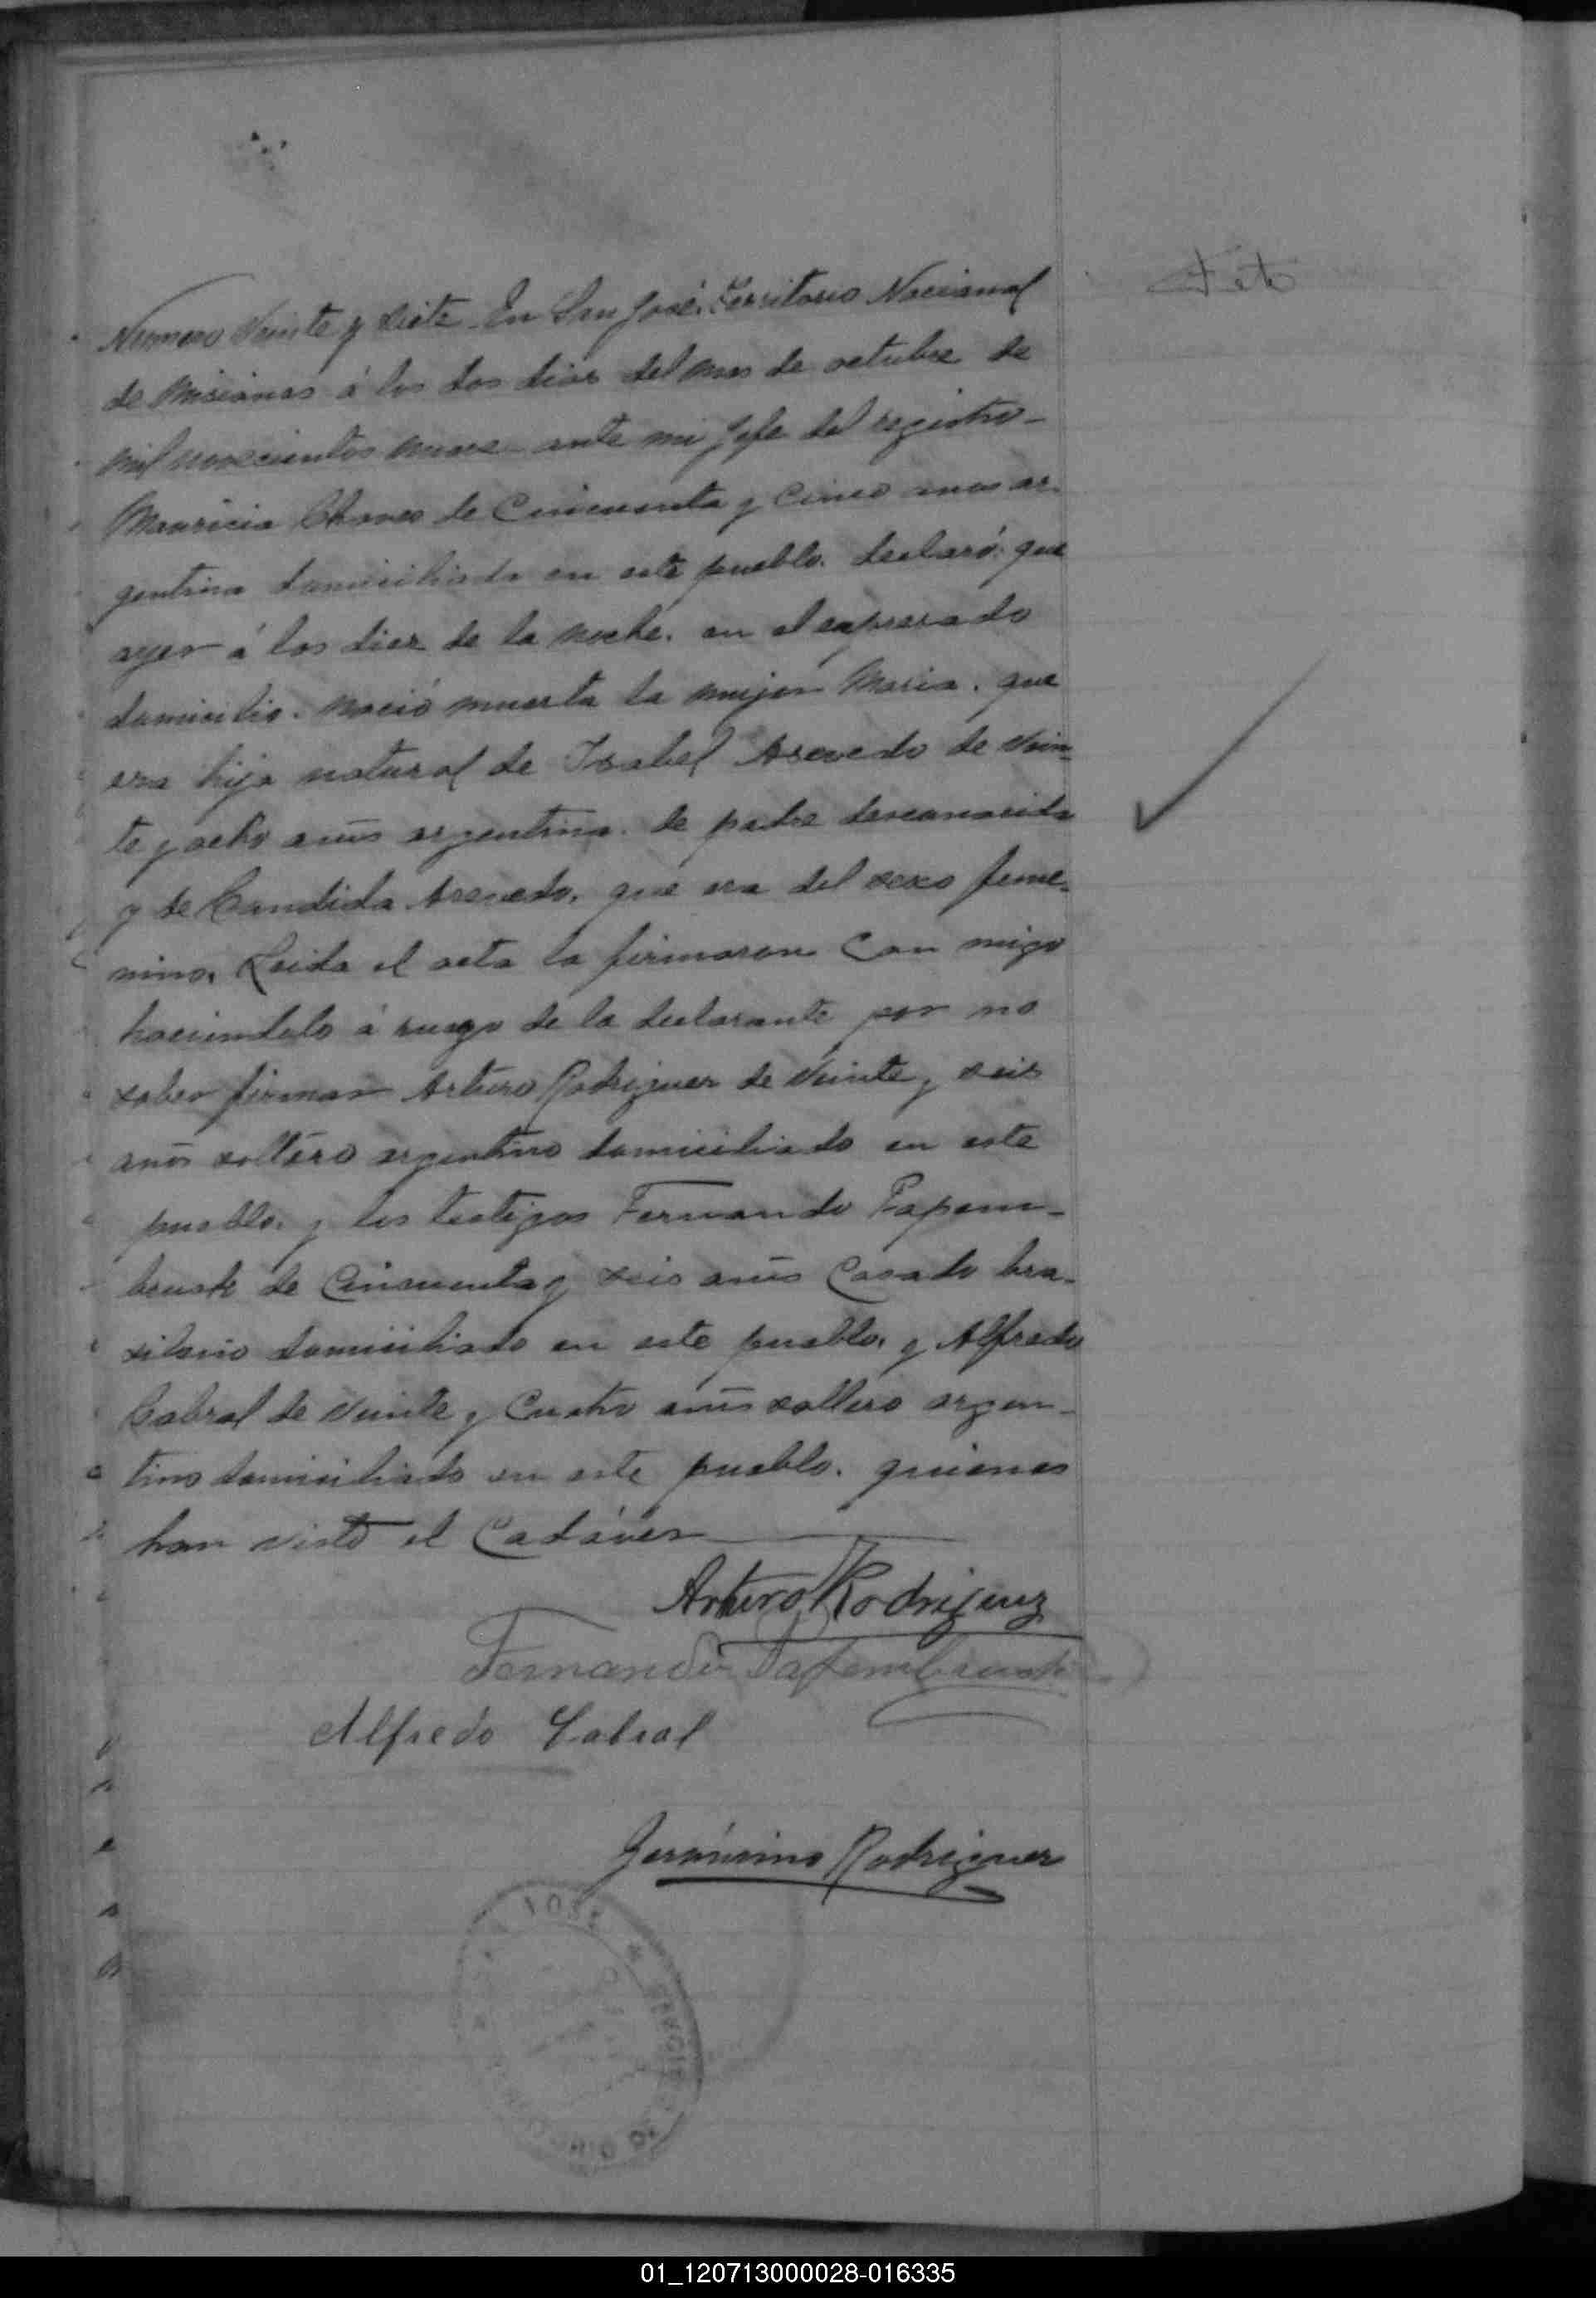 Feto
Numero Veinte y siete En San José, Territorio Nacional
de Misiones á los dos dias del mes de octubre de
mil novecientos nueve ante mi Jefe del registro-
Mauricia Chaves de Cincuenta y Cinco anos ar-
gentina domiciliada en este pueblo. declaró: que
ayer á las diez de la noche. en el expresado
domicilio. nació muerta la mujer Maria. que
era hija natural de Isabel Asevedo de Vein-
te y ocho años argentina. de padre desconocido
y de Candida Asevedo. que era del sexo feme-
nino. Leida el acta la firmaron Con migo
haciendolo á ruego de la declarante por no
saber firmar Arturo Rodriguez de Veinte y seis
años soltero argentino domiciliado en este
pueblo. y los testigos Fernando Papem-
brusk de Cincuenta y seis años Casado bra-
silerio domiciliado en este pueblo. y Alfredo
Cabral de Veinte y Cuatro años soltero argen-
tino domiciliado en este pueblo. quienes
han visto el Cadáver
Arturo Rodriguez
Fernando Papembrusk
Alfredo Cabral
Gerónimo Rodriguez
JOSE
01_120713000028-016335